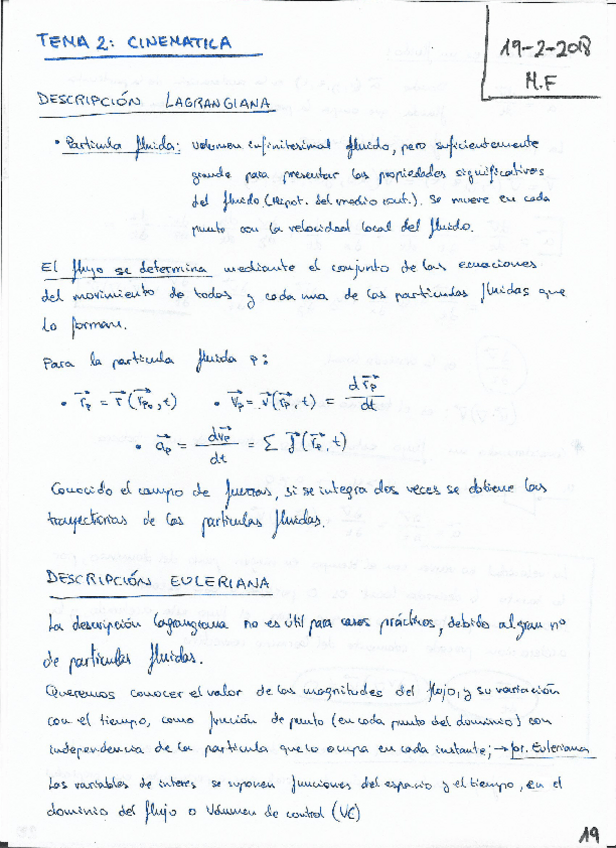 TEMA 2: CINEMATICA
19-2-2018
M.F
DESCRIPCIÓN LAGRANGIANA
• Particula fluida: volumen infinitesimal fluido, pero suficientemente
grande para presentar las propiedades significativas
del fluido. (Hipot. del medio cont.). Se mueve en cada
punto con la velocidad local del fluido.
El flujo se determina mediante el conjunto de las ecuaciones
del movimiento de todas y cada una de las particulas fluidas que
lo forman.
Para la particula fluida p:
• r⃗p = r⃗(r⃗p₀, t) • v⃗p = v⃗(r⃗p, t) = dr⃗p/dt
• a⃗p = dv⃗p/dt = Σ f⃗(r⃗p, t)
Conocido el campo de fuerzas, si se integra dos veces se obtiene las
trayectorias de las particulas fluidas.
DESCRIPCIÓN EULERIANA
La descripción lagrangiana no es útil para casos prácticos, debido al gran nº
de particulas fluidas.
Queremos conocer el valor de las magnitudes del flujo, y su variación
con el tiempo, como función de punto (en cada punto del dominio) con
independencia de la particula que lo ocupa en cada instante; → for. Euleriana
Las variables de interes se suponen funciones del espacio y el tiempo, en el
dominio del flujo o Volumen de control (VC)
19